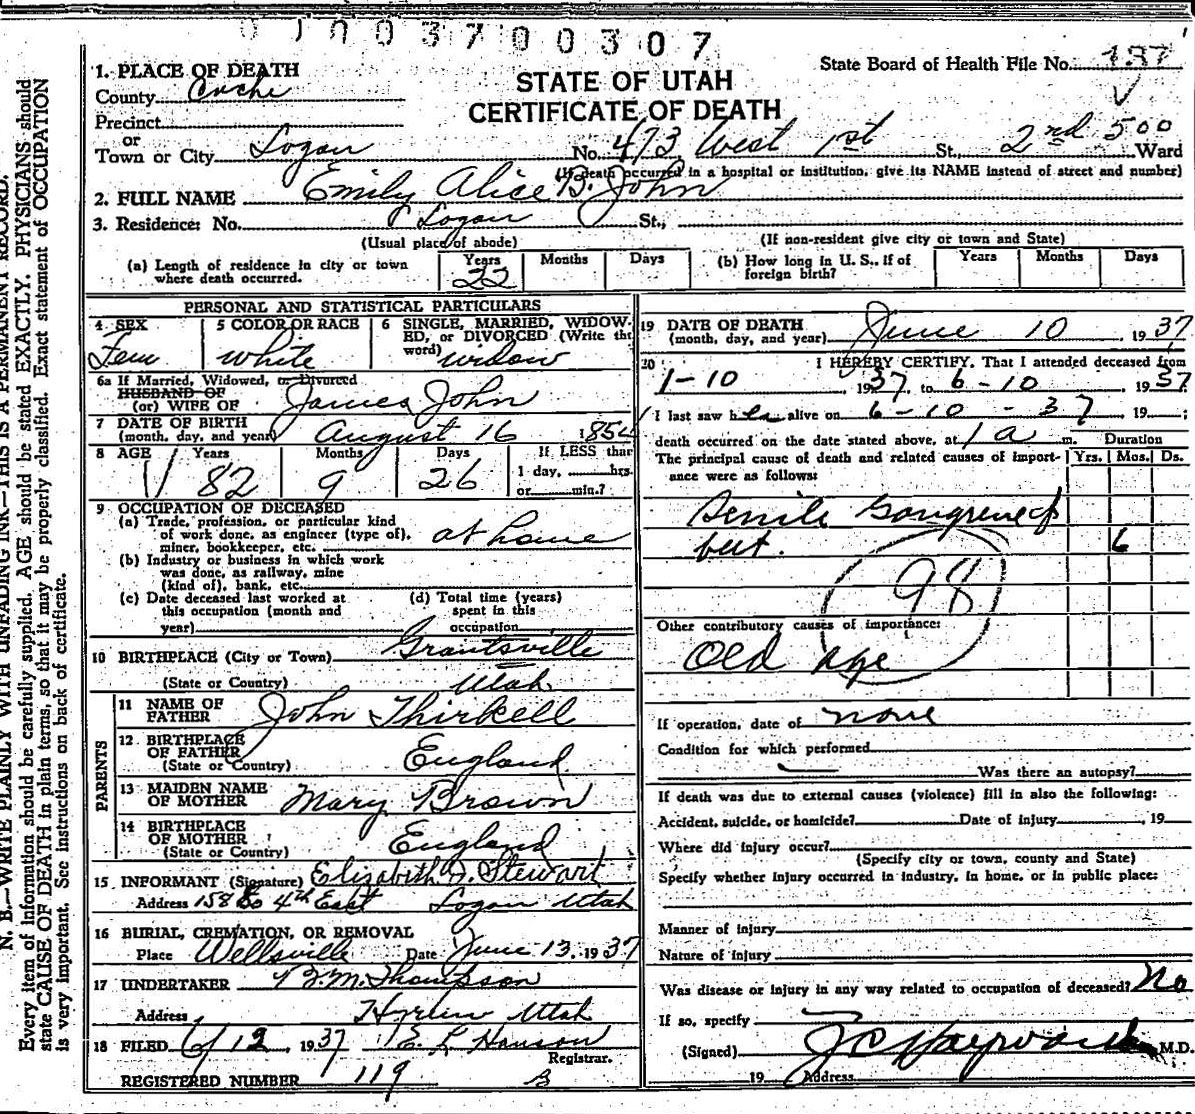 0 1 0 0 3 7 0 0 3 0 7
N. B.—WRITE PLAINLY WITH UNFADING INK—THIS IS A PERMANENT RECORD.
Every item of information should be carefully supplied. AGE should be stated EXACTLY. PHYSICIANS should
state CAUSE OF DEATH in plain terms, so that it may be properly classified. Exact statement of OCCUPATION
is very important. See instructions on back of certificate.
1. PLACE OF DEATH
County Cache
Precinct
or
Town or City Logan
STATE OF UTAH
CERTIFICATE OF DEATH
State Board of Health File No. 137
No. 473 West 1st St., 2nd 500 Ward
(If death occurred in a hospital or institution, give its NAME instead of street and number)
2. FULL NAME Emily Alice B. John
3. Residence: No. Logan St.,
(Usual place of abode)
(If non-resident give city or town and State)
(a) Length of residence in city or town where death occurred. Years 22 Months Days
(b) How long in U. S., if of foreign birth? Years Months Days
PERSONAL AND STATISTICAL PARTICULARS
4 SEX
Fem
5 COLOR OR RACE
white
6 SINGLE, MARRIED, WIDOWED, or DIVORCED (Write the word)
widow
6a If Married, Widowed, or Divorced
HUSBAND OF
(or) WIFE OF James John
7 DATE OF BIRTH
(month, day, and year) August 16 1854
8 AGE Years 82 Months 9 Days 26
If LESS than
1 day, hrs.
or min.?
9 OCCUPATION OF DECEASED
(a) Trade, profession, or particular kind
of work done, as engineer (type of),
miner, bookkeeper, etc. at home
(b) Industry or business in which work
was done, as railway, mine
(kind of), bank, etc.
(c) Date deceased last worked at
this occupation (month and
year)
(d) Total time (years)
spent in this
occupation
10 BIRTHPLACE (City or Town) Grantsville
(State or Country) Utah
PARENTS
11 NAME OF
FATHER John Thirkell
12 BIRTHPLACE
OF FATHER England
(State or Country)
13 MAIDEN NAME
OF MOTHER Mary Brown
14 BIRTHPLACE
OF MOTHER England
(State or Country)
15 INFORMANT (Signature) Elizabeth J. Stewart
Address 158 So 4th East Logan Utah
16 BURIAL, CREMATION, OR REMOVAL
Place Wellsville Date June 13, 1937
17 UNDERTAKER M. Thompson
Address Utah
18 FILED 6/12, 1937 E. L. Hanson
Registrar.
REGISTERED NUMBER 119 B
19 DATE OF DEATH
(month, day, and year) June 10 1937
20 I HEREBY CERTIFY, That I attended deceased from
1-10, 1937, to 6-10, 1937
I last saw her alive on 6-10-37 19 ;
death occurred on the date stated above, at 1 a m. Duration
The principal cause of death and related causes of importance were as follows: Yrs. Mos. Ds.
Senile Gangrene of
feet. 6
98
Other contributory causes of importance:
Old age
If operation, date of none
Condition for which performed
Was there an autopsy?
If death was due to external causes (violence) fill in also the following:
Accident, suicide, or homicide? Date of injury , 19
Where did injury occur?
(Specify city or town, county and State)
Specify whether injury occurred in industry, in home, or in public place:
Manner of injury
Nature of injury
Was disease or injury in any way related to occupation of deceased? No
If so, specify
(Signed) J C Hayward M.D.
19 Address